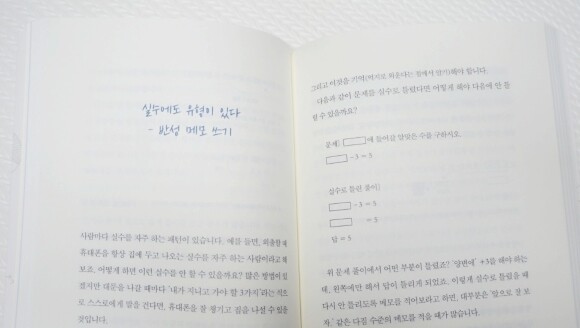 실수에도 유형이 있다
- 반성 메모 쓰기
사람마다 실수를 자주 하는 패턴이 있습니다. 예를 들면, 외출할 때
휴대폰을 항상 집에 두고 나오는 실수를 자주 하는 사람이라고 해
보죠. 어떻게 하면 이런 실수를 안 할 수 있을까요? 많은 방법이 있
겠지만 대문을 나갈 때마다 '내가 지니고 가야 할 3가지'라는 식으
로 스스로에게 말을 건다면, 휴대폰을 잘 챙기고 집을 나설 수 있을
것입니다.
그리고 이것을 기억(억지로 외운다는 점에서 암기)해야 합니다.
다음과 같이 문제를 실수로 틀렸다면 어떻게 해야 다음에 안 틀
릴 수 있을까요?
문제] 에 들어갈 알맞은 수를 구하시오.
-3 = 5
실수로 틀린 풀이]
-3 = 5
= 5
답 = 5
위 문제 풀이에서 어떤 부분이 틀렸죠? '양변에' +3를 해야 하는
데, 왼쪽에만 해서 답이 틀리게 되었죠. 이렇게 실수로 틀렸을 때
다시 안 틀리도록 메모를 적어보라고 하면, 대부분은 '앞으로 잘 보
자.' 같은 다짐 수준의 메모를 적을 때가 많습니다.